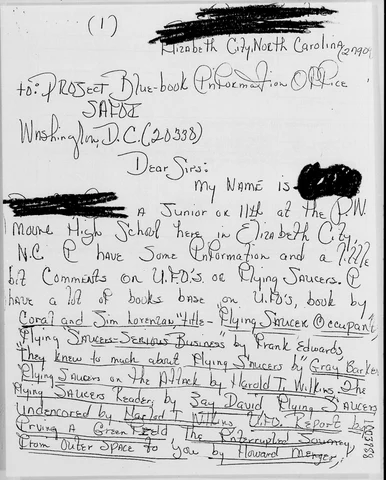 (1)
Elizabeth City, North Carolina 27909
to: PROJECT Blue-book Information Office
SAFOI
Washington, D.C. (20338)
Dear Sirs:
My NAME is
A Junior or 11th at the P.W.
Moore High School here in Elizabeth City,
N.C. I have Some Information and a little
bit Comments on U.F.O'S. or Flying Saucers. I
have a lot of books base on U.F.O's, book by
Coral and Jim Lorenzan "title- "Flying Saucer Occupants"
"Flying Saucers-Serious Business" by Frank Edwards,
They knew to much about Flying Saucers by "Gray Barker
Flying Saucers on the Attack by Harold T. Wilkins, The
Flying Saucers Reader, by Jay David, Flying Saucers
Undencored by Harlod T Wilkins U.F.O. Report by
Irving A Green Field The Interrupted Journey
From Outer Space to You by Howard Menger,